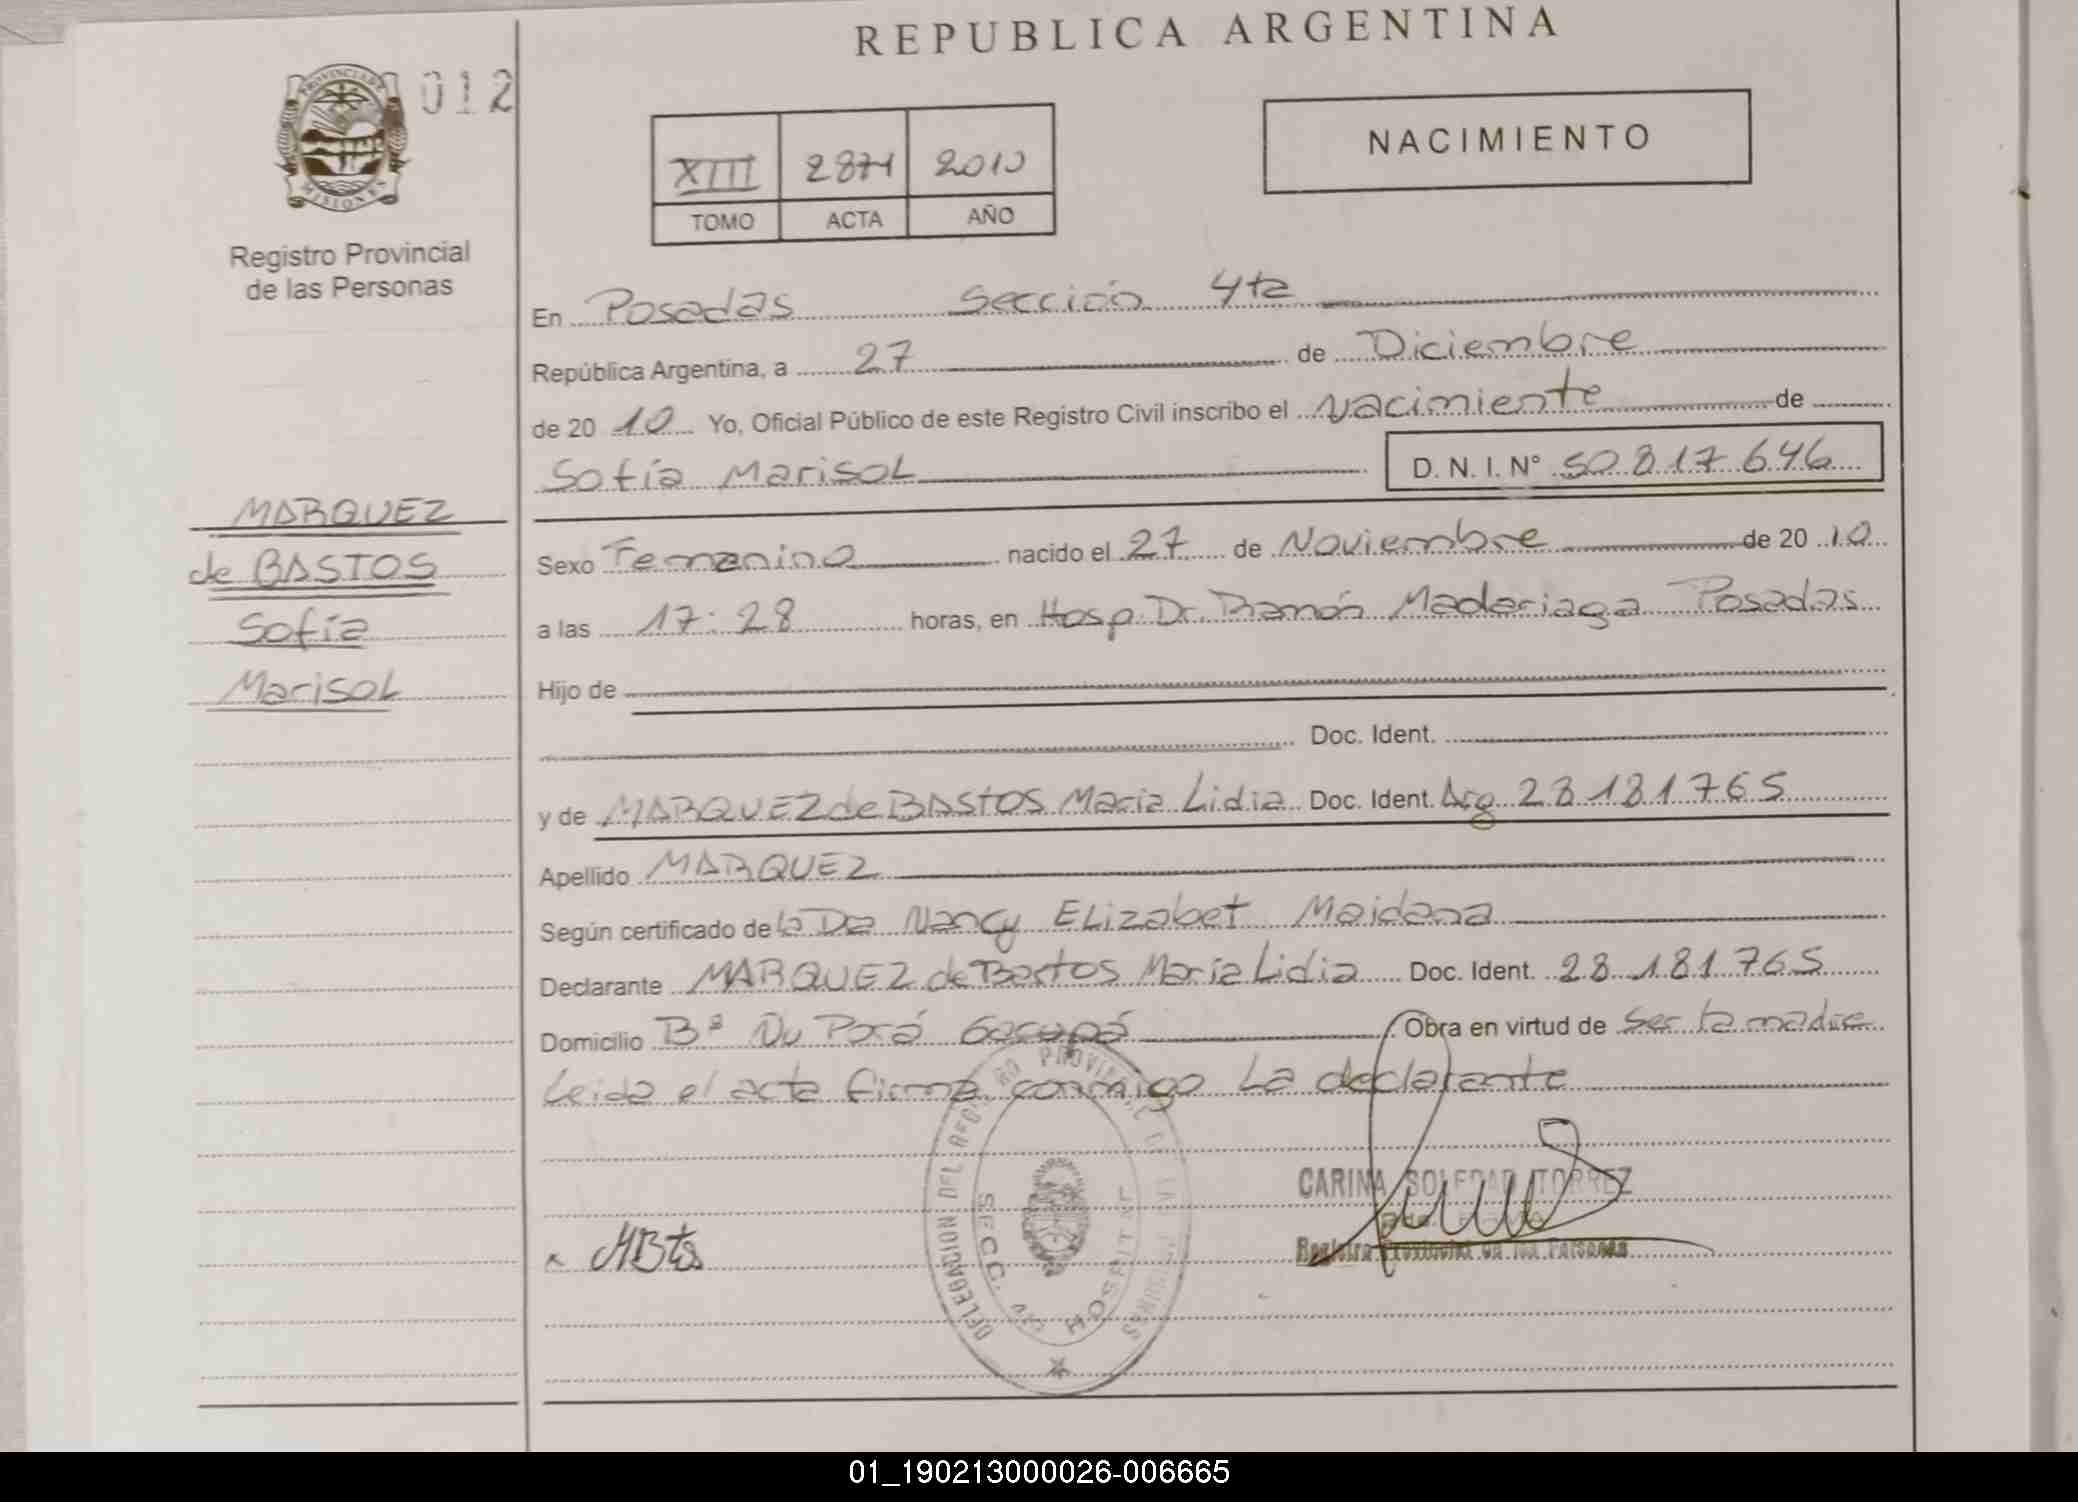 REPUBLICA ARGENTINA
012
PROVINCIA DE
MISIONES
Registro Provincial
de las Personas
XIII 2871 2010
TOMO ACTA AÑO
NACIMIENTO
En Posadas Sección 4ta
República Argentina, a 27 de Diciembre
de 20 10 Yo, Oficial Público de este Registro Civil inscribo el Nacimiento de
Sofía Marisol D. N. I. N° 50 817 646
MARQUEZ
de BASTOS
Sofía
Marisol
Sexo Femenino nacido el 27 de Noviembre de 20 10
a las 17:28 horas, en Hosp. Dr. Ramón Madariaga Posadas
Hijo de
Doc. Ident.
y de MARQUEZ de BASTOS Maria Lidia Doc. Ident. Arg 28 181 765
Apellido MARQUEZ
Según certificado de la Dra Nancy Elizabet Maidana
Declarante MARQUEZ de Bastos María Lidia Doc. Ident. 28 181 765
Domicilio B° Ñu Porá Garupá Obra en virtud de Ser la madre
Leida el acta firma conmigo La declarante
DELEGACION DEL REGISTRO PROVINCIAL DE LAS PERSONAS
SECC. 4ta HOSPITAL
CARINA SOLEDAD TORREZ
Registro Provincial de las Personas
x MBts
01_190213000026-006665